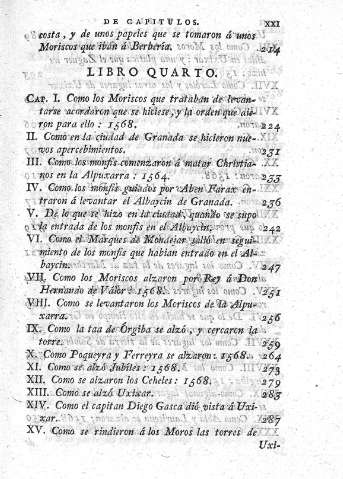 DE CAPITULOS. XXI
costa, y de unos papeles que se tomaron á unos
Moriscos que iban á Berbería. 214
LIBRO QUARTO.
CAP. I. Como los Moriscos que trataban de levan-
tarse acordaron que se hiciese, y la orden que die-
ron para ello : 1568. 224
II. Como en la ciudad de Granada se hicieron nue-
vos apercebimientos. 231
III. Como los monfís comenzaron á matar Christia-
nos en la Alpuxarra : 1564. 233
IV. Como los monfís guiados por Aben Farax en-
traron á levantar el Albaycin de Granada. 236
V. De lo que se hizo en la ciudad, quando se supo
la entrada de los monfís en el Albaycin. 242
VI. Como el Marques de Mondejar salió en segui-
miento de los monfís que habian entrado en el Al-
baycin. 247
VII. Como los Moriscos alzaron por Rey á Don
Hernando de Válor : 1568. 251
VIII. Como se levantaron los Moriscos de la Alpu-
xarra. 256
IX. Como la taa de Órgiba se alzó, y cercaron la
torre. 259
X. Como Poqueyra y Ferreyra se alzaron : 1568. 264
XI. Como se alzó Jubiles : 1568. 273
XII. Como se alzaron los Ceheles : 1568. 279
XIII. Como se alzó Uxixar. 283
XIV. Como el capitan Diego Gasca dió vista á Uxi-
xar. 287
XV. Como se rindieron á los Moros las torres de
Uxi-